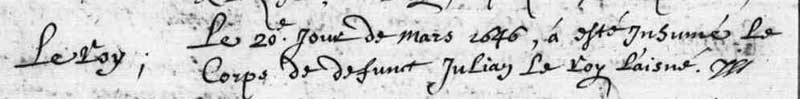 Le Roy ;
Le 20e. Jour de mars 1646, á esté Inhumé Le
Corps de defunct Julian Le Roy l'aisné.